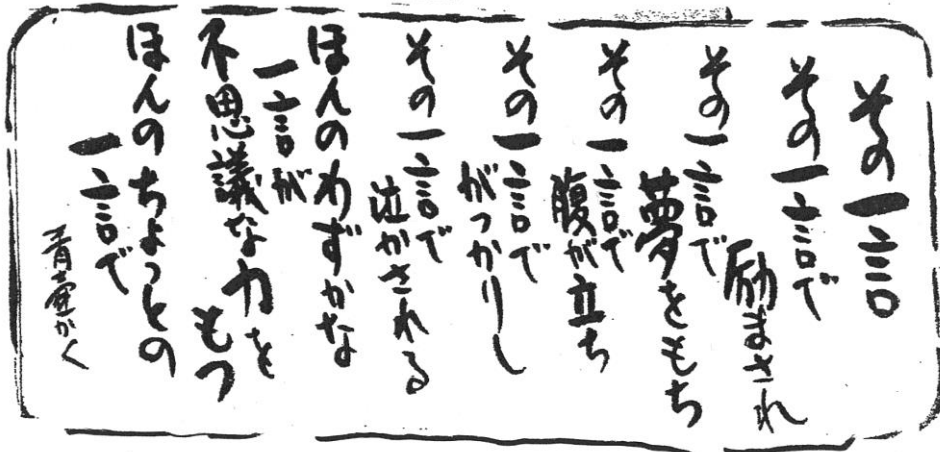 その一言
その一言で
励まされ
その一言で
夢をもち
その一言で
腹が立ち
その一言で
がっかりし
その一言で
泣かされる
ほんのわずかな
一言が
不思議な力を
もつ
ほんのちょっとの
一言で